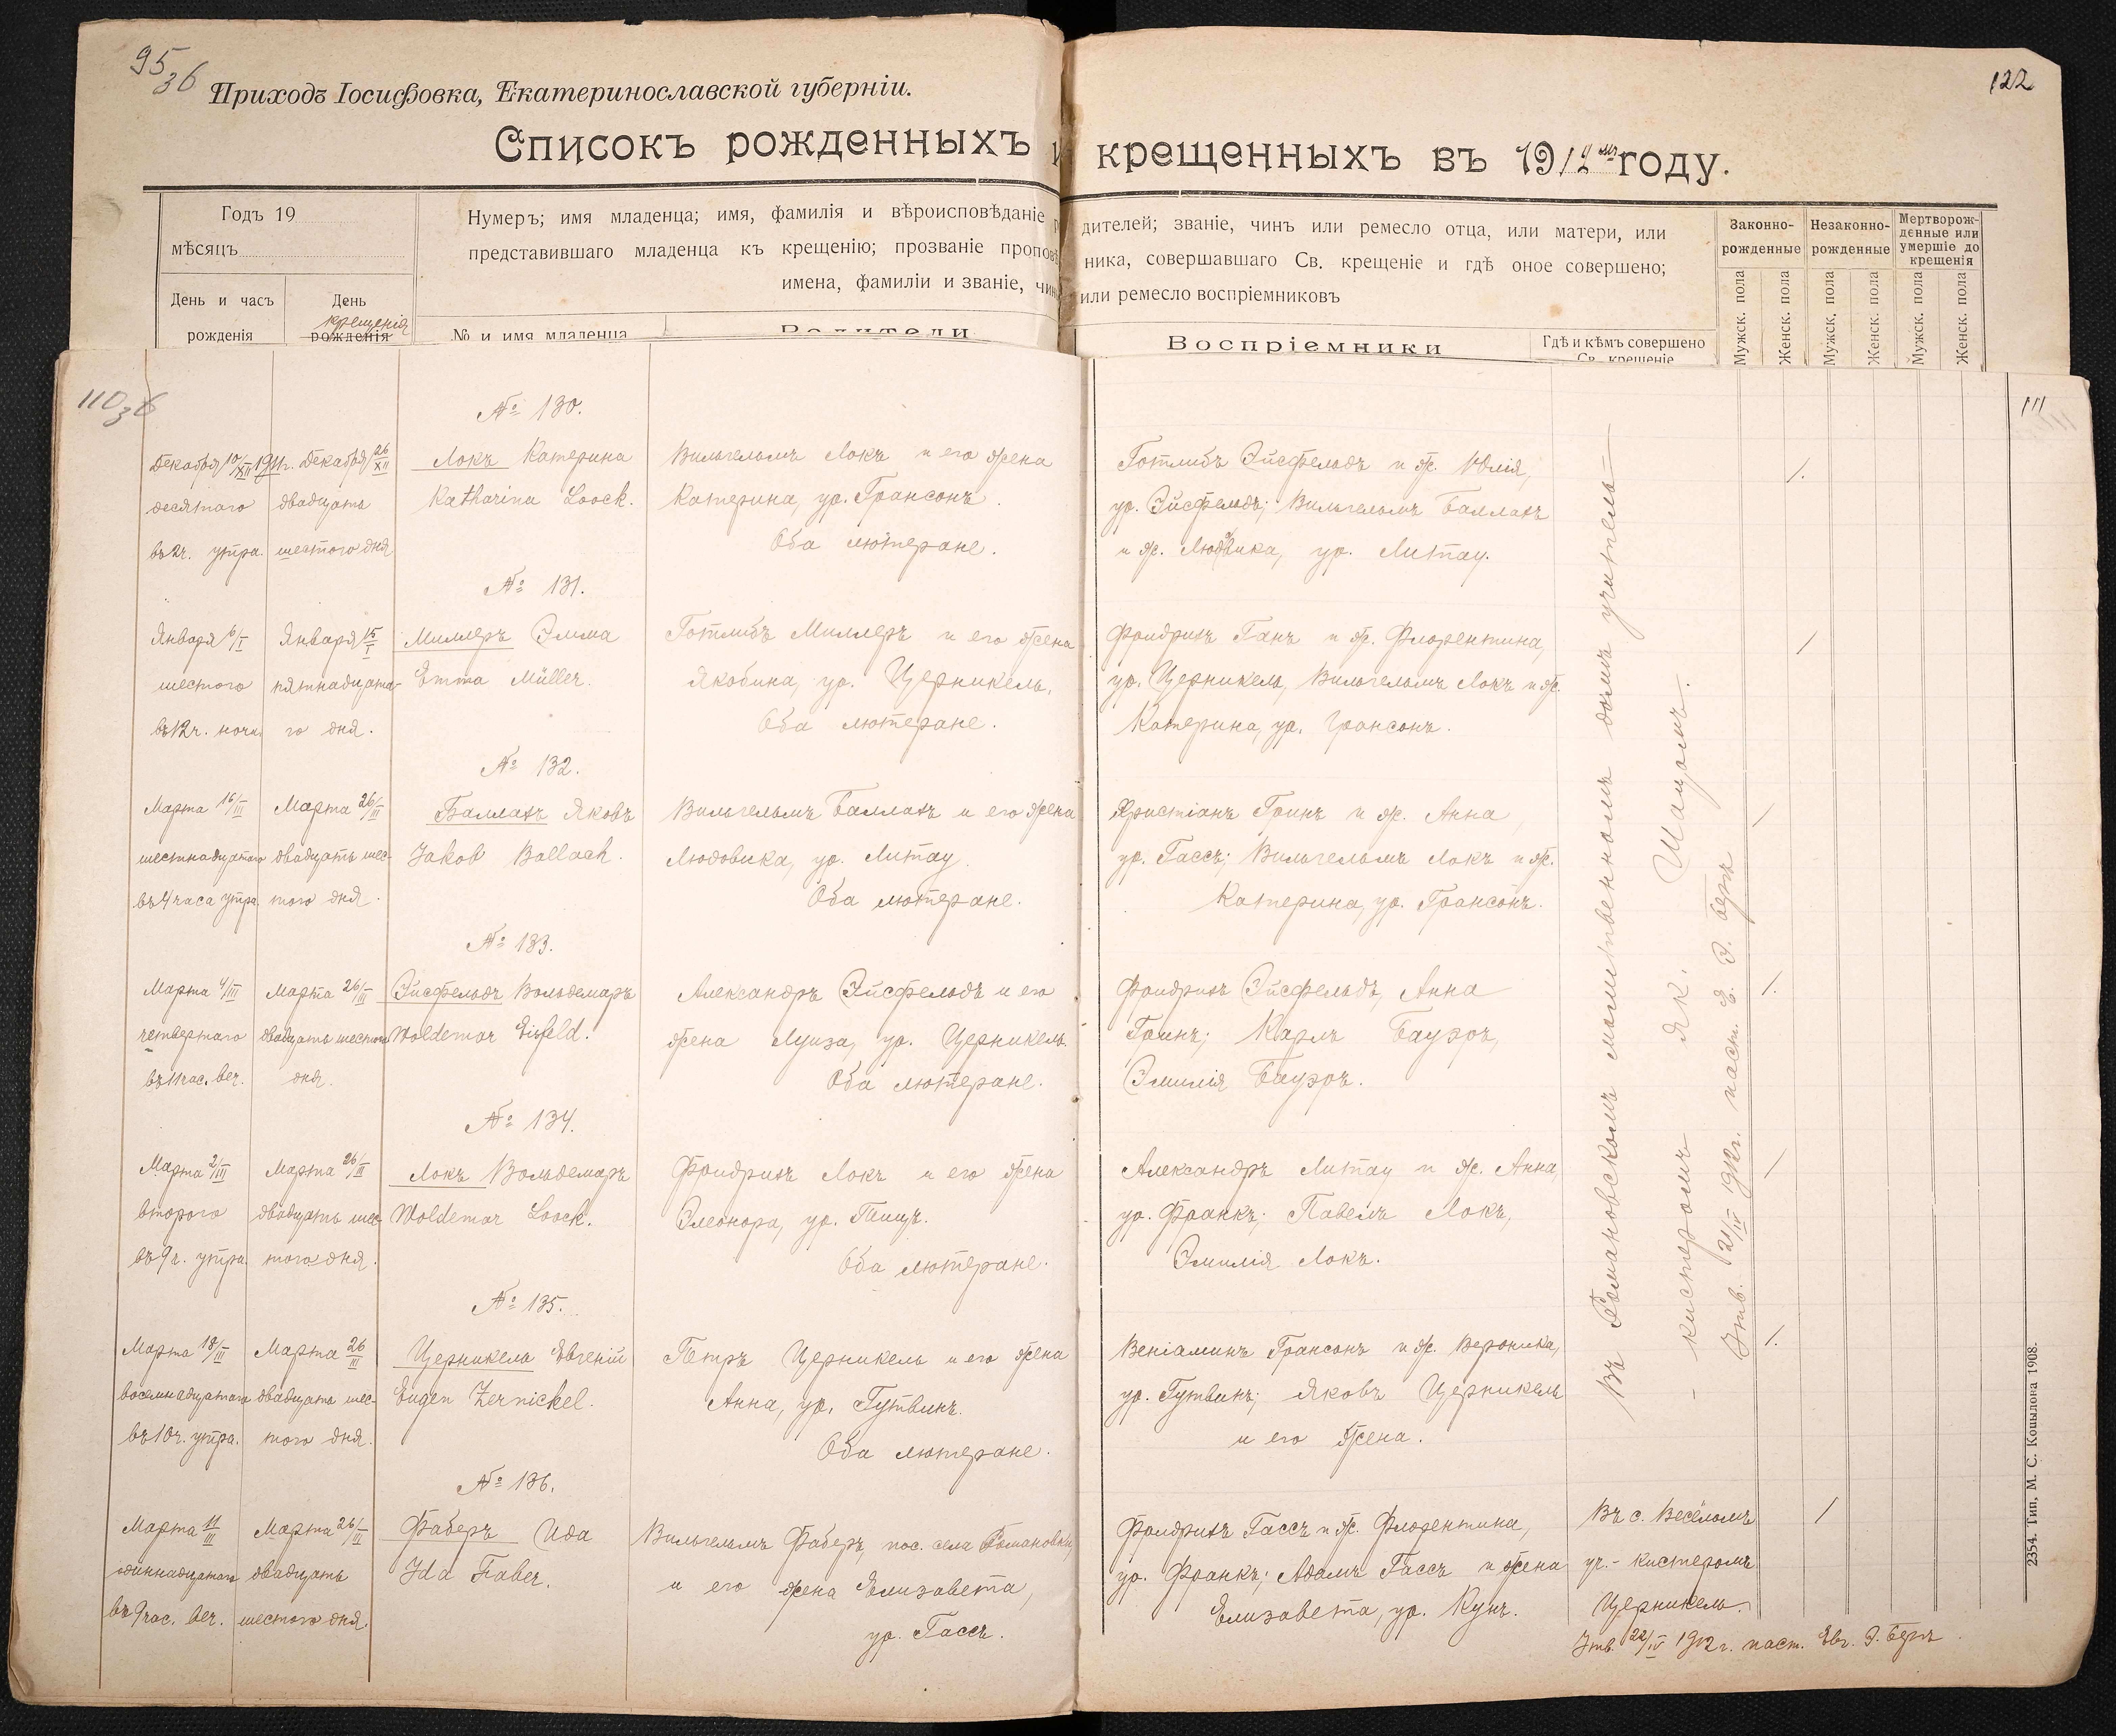 95
36
122
Приходъ Іосифовка, Екатеринославской губерніи.
Списокъ рожденныхъ и крещенныхъ въ 1912 году.
Годъ 19
мѣсяцъ
День и часъ
рожденія
День
крещенія
рожденія
Нумеръ; имя младенца; имя, фамилія и вѣроисповѣданіе
дителей; званіе, чинъ или ремесло отца, или матери, или
представившаго младенца къ крещенію; прозваніе проповѣ
ника, совершавшаго Св. крещеніе и гдѣ оное совершено;
имена, фамиліи и званіе, чинъ
или ремесло воспріемниковъ
№ и имя младенца
Родители
Воспріемники
Гдѣ и кѣмъ совершено
Св. крещеніе
Законно-
рожденные
Незаконно-
рожденные
Мертворож-
денные или
умершіе до
крещенія
Мужск. пола
Женск. пола
Мужск. пола
Женск. пола
Мужск. пола
Женск. пола
110
36
111
№ 130.
Декабря 10/XII 1911г.
десятаго
въ 2ч. утра.
Декабря 26/XII
двадцать
шестого дня
Локъ Катерина
Katharina Loock.
Вильгельмъ Локъ и его жена
Катерина, ур. Грансонъ.
Оба лютеране.
Готлибъ Эйсфельдъ и ж. Юлія,
ур. Эйсфельдъ; Вильгельмъ Баллахъ
и ж. Людвика, ур. Литау.
1.
№ 131.
Января 6/I
шестого
въ 12ч. ночи.
Января 15/I
пятнадцата-
го дня.
Миллеръ Эмма
Emma Müller.
Готлибъ Миллеръ и его жена
Якобина, ур. Церникель.
Оба лютеране.
Фридрихъ Ганъ и ж. Флорентина,
ур. Церникель, Вильгельмъ Локъ и ж.
Катерина, ур. Грансонъ.
1
№ 132.
Марта 16/III
шестнадцатаго
въ 4 часа утра.
Марта 26/III
двадцать шес-
того дня.
Баллахъ Яковъ
Jakob Ballach.
Вильгельмъ Баллахъ и его жена
Людовика, ур. Литау.
Оба лютеране.
Христіанъ Гринъ и ж. Анна,
ур. Гассъ; Вильгельмъ Локъ и ж.
Катерина, ур. Грансонъ.
1
№ 133.
Марта 4/III
четвертаго
въ 11 час. веч.
Марта 26/III
двадцать шестого
дня.
Эйсфельдъ Вольдемаръ
Woldemar Eisfeld.
Александръ Эйсфельдъ и его
жена Луиза, ур. Церникель.
Оба лютеране.
Фридрихъ Эйсфельдъ, Анна
Гринъ; Карлъ Бауэръ,
Эмилія Бауэръ.
1.
№ 134.
Марта 2/III
второго
въ 9ч. утра.
Марта 26/III
двадцать шес-
того дня.
Локъ Вольдемаръ
Woldemar Loock.
Фридрихъ Локъ и его жена
Элеонора, ур.
Оба лютеране.
Александръ Литау и ж. Анна,
ур. Франкъ; Павелъ Локъ,
Эмилія Локъ.
1
№ 135.
Марта 18/III
восемнадцатаго
въ 10ч. утра.
Марта 26/III
двадцать шес-
того дня.
Церникель Евгеній
Eugen Zernickel.
Петръ Церникель и его жена
Анна, ур. Гутвинъ.
Оба лютеране.
Веніаминъ Грансонъ и ж. Вероника,
ур. Гутвинъ; Яковъ Церникель
и его жена.
1.
Въ Романовскомъ молитвенномъ домѣ учитель-
- кистеромъ Як. Шацомъ.
Утв. 21/IV 1912г. паст. Е. Э. Беръ
№ 136.
Марта 11/III
одиннадцатаго
въ 9 час. веч.
Марта 26/III
двадцать
шестого дня.
Фаберъ Ида
Ida Faber.
Вильгельмъ Фаберъ, пос. села Романовки,
и его жена Елизавета,
ур. Гассъ.
Фридрихъ Гассъ и ж. Флорентина,
ур. Франкъ; Адамъ Гассъ и жена
Елизавета, ур. Кунъ.
Въ с. Весёломъ
уч.-кистеромъ
Церникель.
1
Утв. 22/IV 1912г. паст. Евг. Э. Беръ.
2354. Тип. М. С. Копылова 1908.